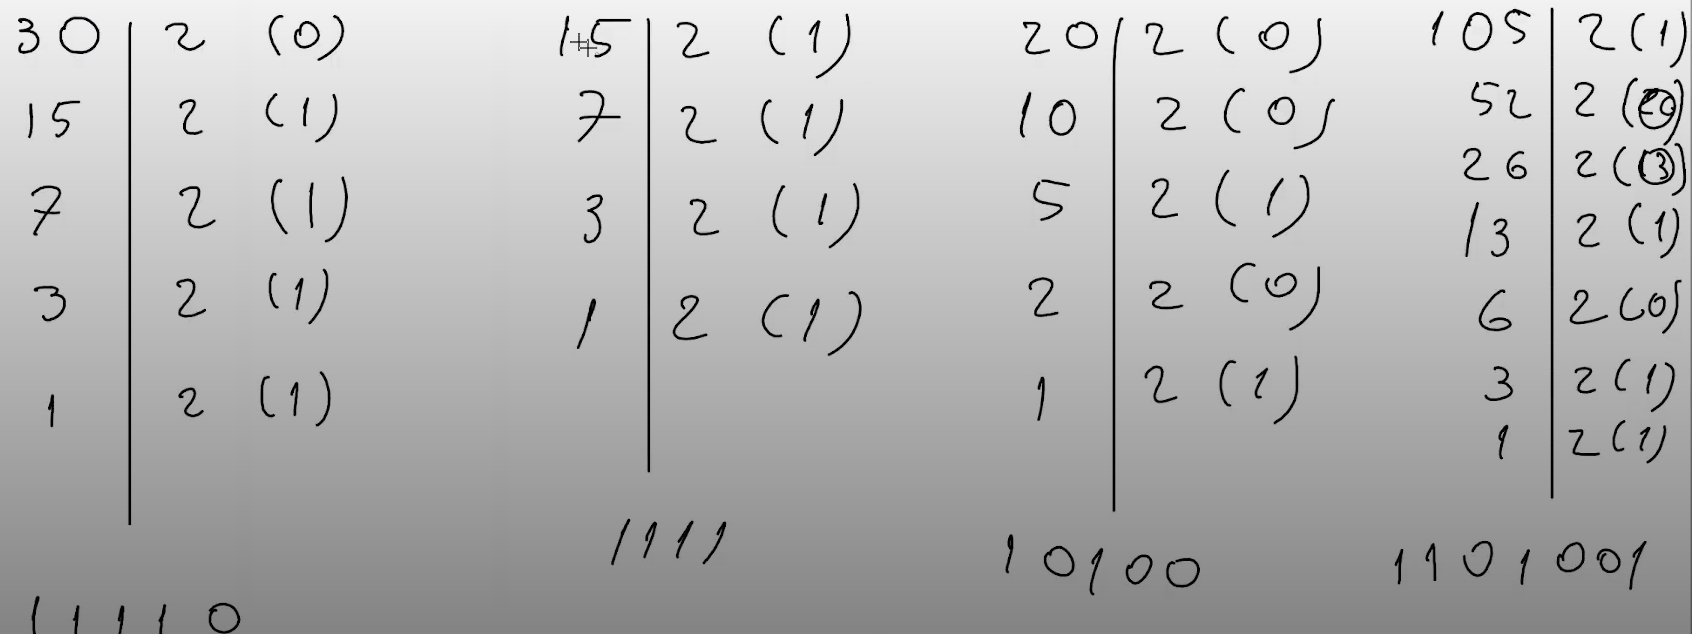 30 | 2 (0)
15 | 2 (1)
7 | 2 (1)
3 | 2 (1)
1 | 2 (1)
11110
15 | 2 (1)
7 | 2 (1)
3 | 2 (1)
1 | 2 (1)
1111
20 | 2 (0)
10 | 2 (0)
5 | 2 (1)
2 | 2 (0)
1 | 2 (1)
10100
105 | 2 (1)
52 | 2
26 | 2
13 | 2 (1)
6 | 2 (0)
3 | 2 (1)
1 | 2 (1)
1101001